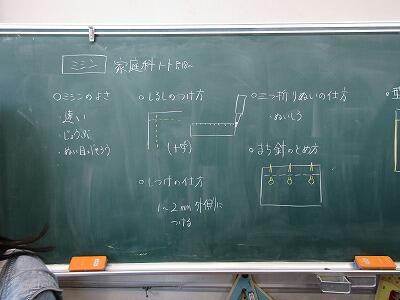 ミシン 家庭科ノート
○ミシンのよさ
・速い
・じょうぶ
・ぬい目がそろう
○しるしのつけ方
(十字)
○しつけの仕方
1〜2mm外側に
つける
○三つ折りぬいの仕方
・ぬいしろ
○まち針のとめ方